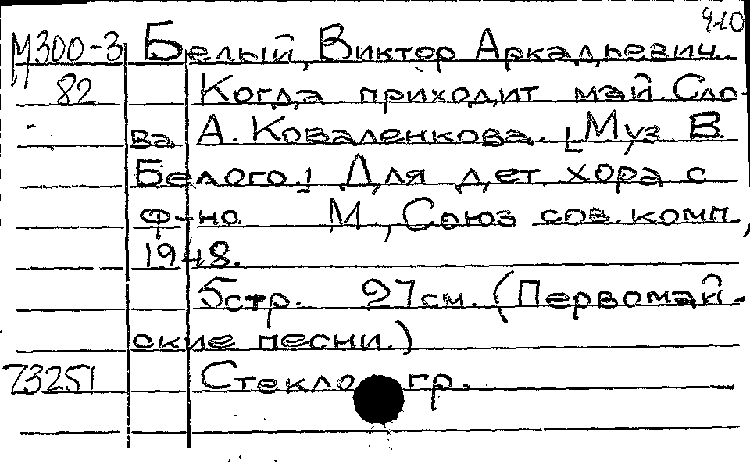 910
М300-3 Белый, Виктор Аркадьевич.
82 Когда приходит май. Сло-
ва А. Коваленкова. [Муз В.
Белого.] Для дет. хора с
ф-но М., Союз сов. комп.,
1948.
5 стр. 27 см. (Первомай-
ские песни.)
73251 Стеклогр.